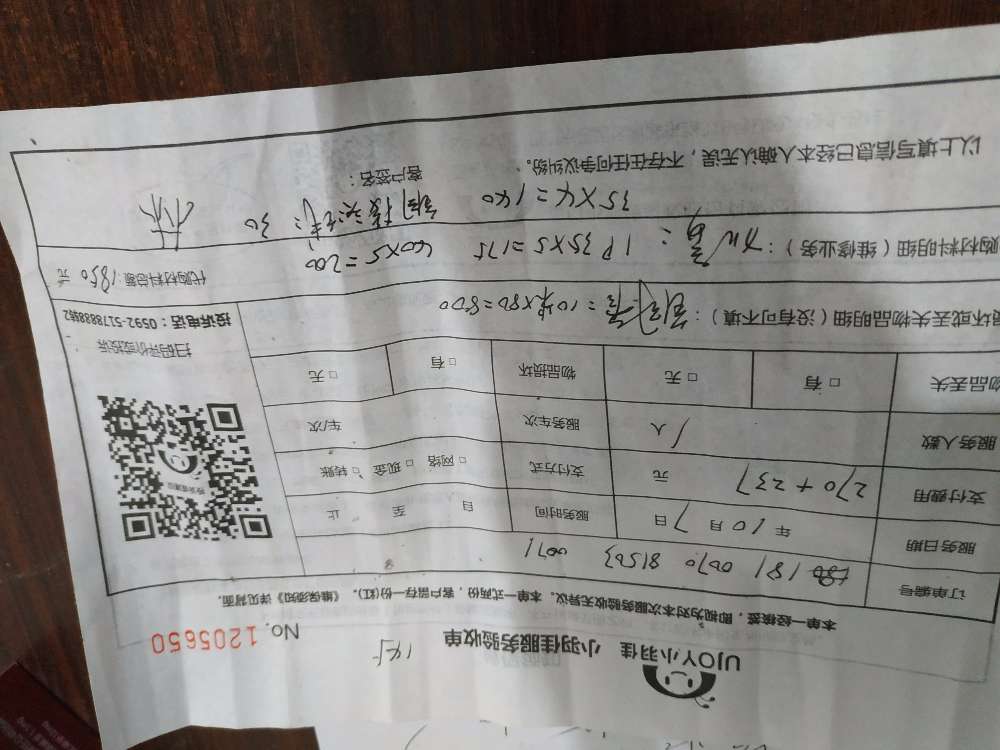 UJOY小羽佳 小羽佳服务验收单
No. 1205650
本单一经核签，即视为对本次服务验收无异议。本单一式两份，客户留存一份(红)。《维保须知》详见背面。
订单编号 181 0070 81503 0071
服务日期 年10月7日 服务时间 自 至 止
支付费用 270+237 元 支付方式 □网络 □现金 □转账
服务人数 1人 服务车次 车/次
物品丢失 □有 □无 物品损坏 □有 □无
扫码评价或投诉
投诉电话：0592-5178888转2
坏或丢失物品明细（没有可不填）： =10米×80=800
购材料明细（维修业务）： 1P 35×5=175 40×5=200
代购材料总额：1850元
35×4=140 30
客户签名： 林
以上填写信息已经本人确认无误，不存在任何争议纠纷。